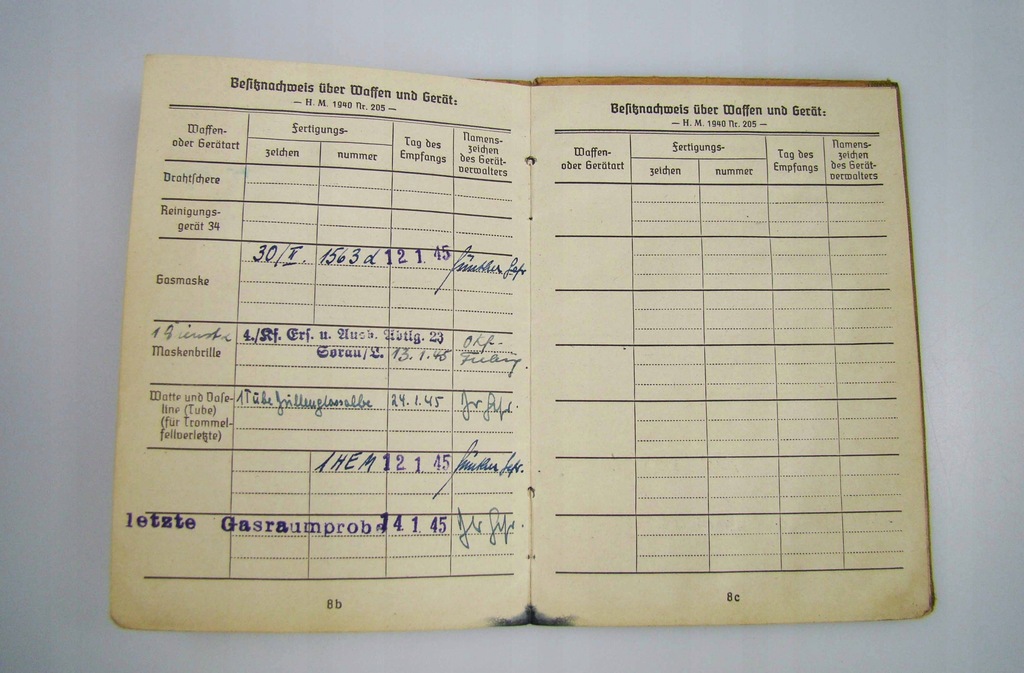 Besitznachweis über Waffen und Gerät:
— H. M. 1940 Nr. 205 —
Waffen-
oder Gerätart
Fertigungs-
zeichen
nummer
Tag des
Empfangs
Namens-
zeichen
des Gerät-
verwalters
Drahtschere
Reinigungs-
gerät 34
Gasmaske
30/II. 1563 d 12 1. 45
1
Maskenbrille
4./Kf. Ers. u. Ausb. Abtlg. 23
Sorau/L. 13.1.45
Watte und Vase-
line (Tube)
(für Trommel-
fellverletzte)
1 Tube 24.1.45
1 HEM 12 1. 45
letzte Gasraumprobe 14 1. 45
8b
Besitznachweis über Waffen und Gerät:
— H. M. 1940 Nr. 205 —
Waffen-
oder Gerätart
Fertigungs-
zeichen
nummer
Tag des
Empfangs
Namens-
zeichen
des Gerät-
verwalters
8c